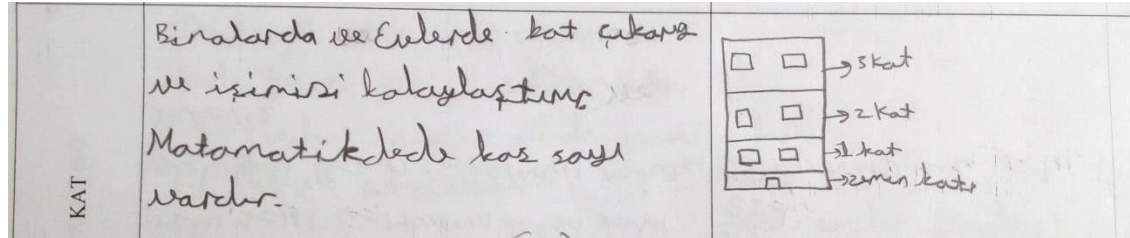 KAT
Binalarda ve Evlerde kat çıkarız
ve işimisi kolaylaştırır
Matamatikdede kas sayı
vardır.
→3 kat
→2 kat
→1 kat
→zemin katı